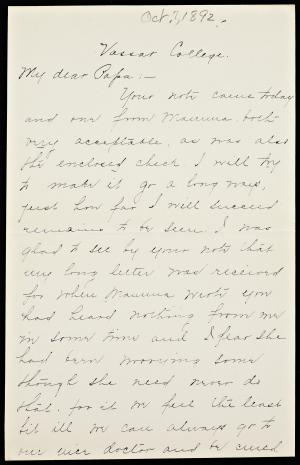 Oct. 7, 1892.
Vassar College.
My dear Papa:—
Your note came today
and one from Mamma, both
very acceptable, as was also
the enclosed check. I will try
to make it go a long ways,
just how far I will succeed
remains to be seen. I was
glad to see by your note that
my long letter was received
for when Mamma wrote you
had heard nothing from me
in some time and I fear she
had been worrying some
though she need never do
that, for if we feel the least
bit ill we can always go to
our nice doctor and be cured